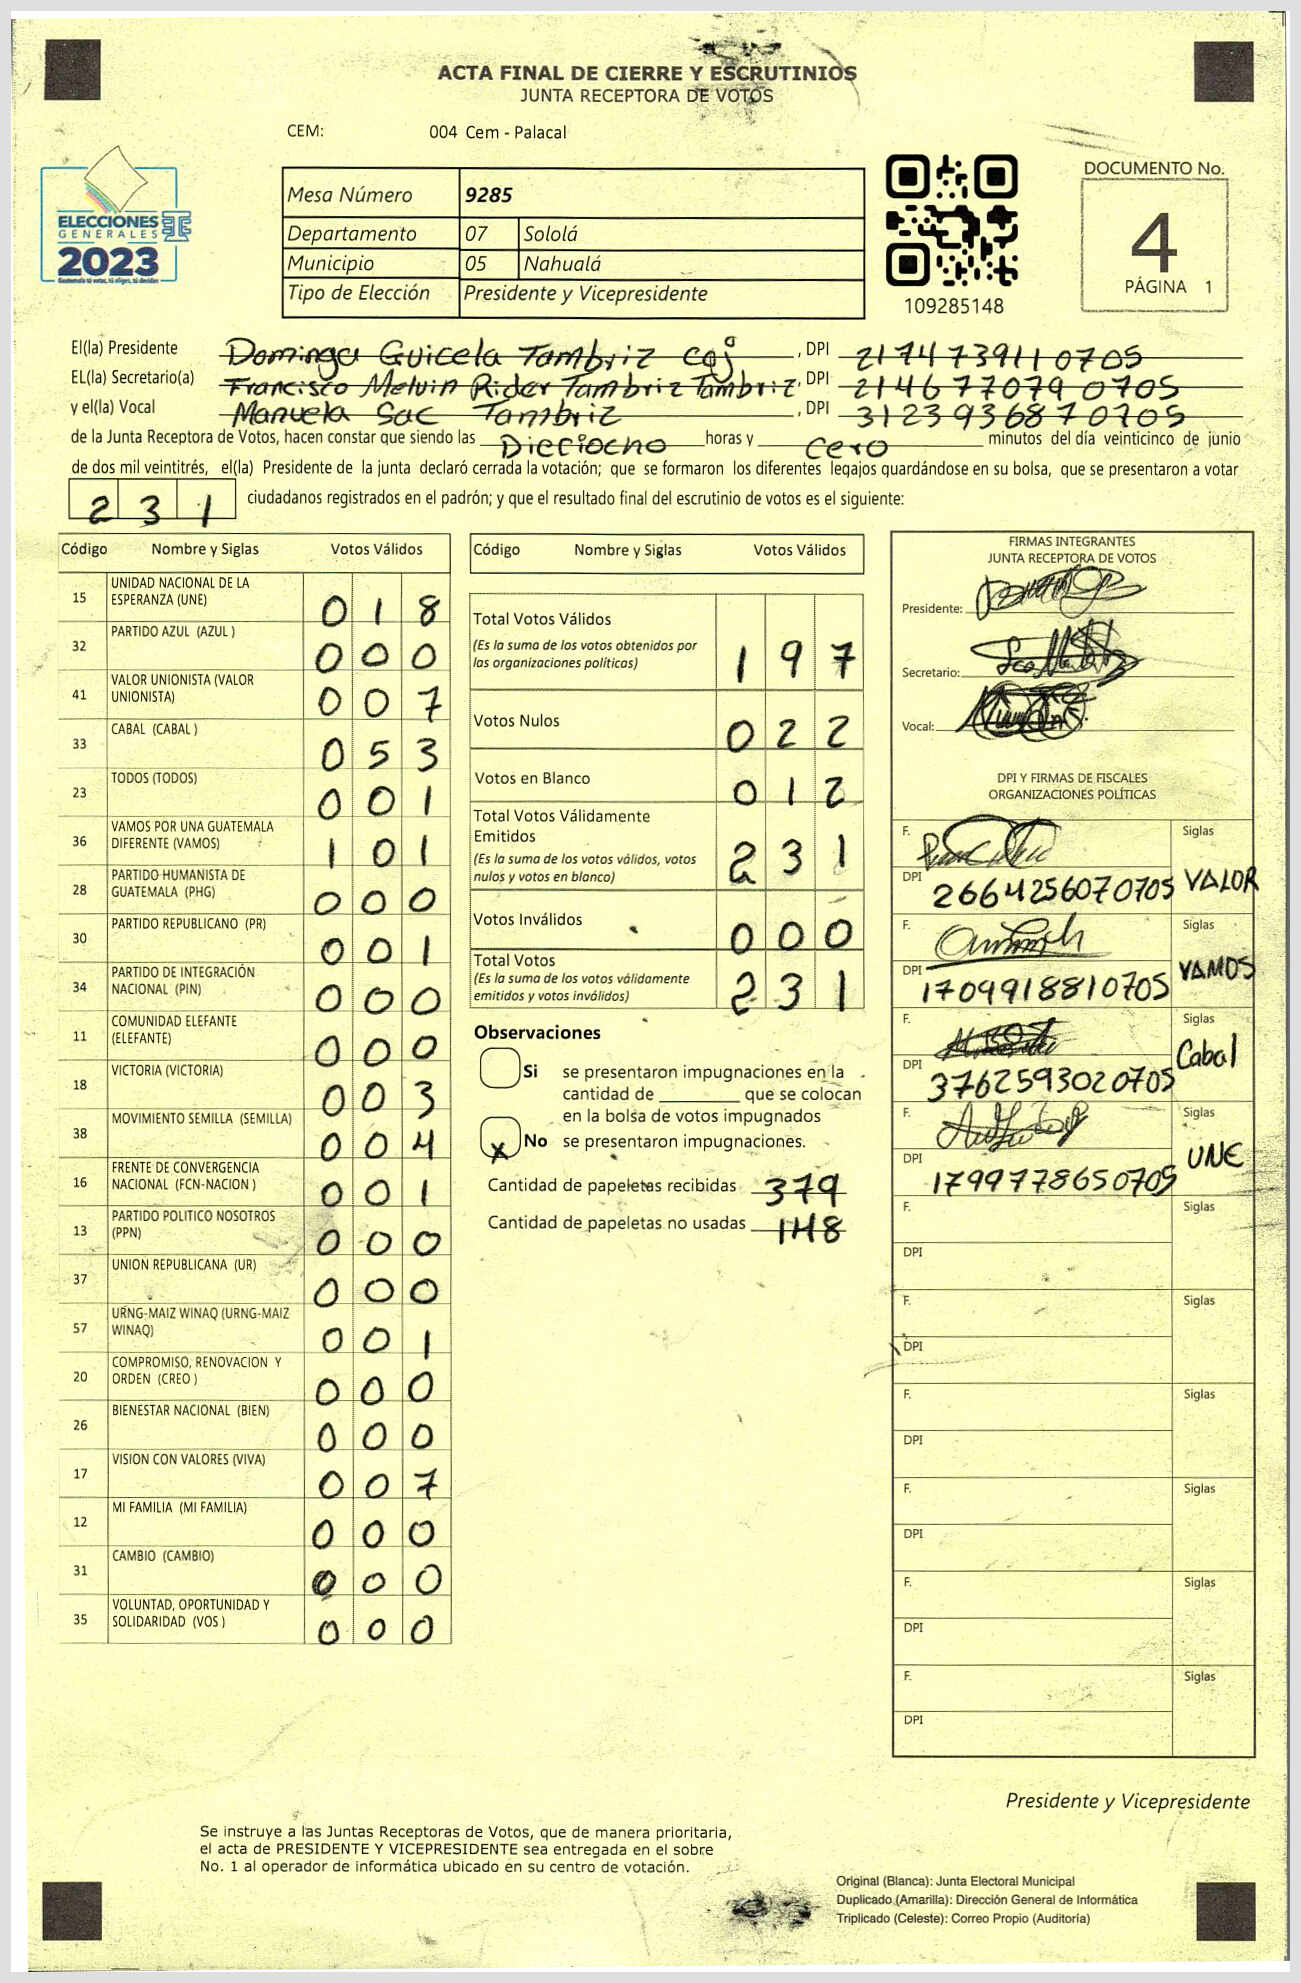 ACTA FINAL DE CIERRE Y ESCRUTINIOS
JUNTA RECEPTORA DE VOTOS
CEM: 004 Cem - Palacal
ELECCIONES
GENERALES
2023
Guatemala tú votas, tú eliges, tú decides
Mesa Número 9285
Departamento 07 Sololá
Municipio 05 Nahualá
Tipo de Elección Presidente y Vicepresidente
109285148
DOCUMENTO No.
4
PÁGINA 1
El(la) Presidente Dominga Guicela Tambriz coj , DPI 2174739110705
EL(la) Secretario(a) Francisco Melvin Rider Tambriz Tambriz , DPI 2146770790705
y el(la) Vocal Manuela Sac Tambriz , DPI 3123936870705
de la Junta Receptora de Votos, hacen constar que siendo las Dieciocho horas y cero minutos del día veinticinco de junio
de dos mil veintitrés, el(la) Presidente de la junta declaró cerrada la votación; que se formaron los diferentes legajos guardándose en su bolsa, que se presentaron a votar
231 ciudadanos registrados en el padrón; y que el resultado final del escrutinio de votos es el siguiente:
Código Nombre y Siglas Votos Válidos
15 UNIDAD NACIONAL DE LA ESPERANZA (UNE) 018
32 PARTIDO AZUL (AZUL ) 000
41 VALOR UNIONISTA (VALOR UNIONISTA) 007
33 CABAL (CABAL ) 053
23 TODOS (TODOS) 001
36 VAMOS POR UNA GUATEMALA DIFERENTE (VAMOS) 101
28 PARTIDO HUMANISTA DE GUATEMALA (PHG) 000
30 PARTIDO REPUBLICANO (PR) 001
34 PARTIDO DE INTEGRACIÓN NACIONAL (PIN) 000
11 COMUNIDAD ELEFANTE (ELEFANTE) 000
18 VICTORIA (VICTORIA) 003
38 MOVIMIENTO SEMILLA (SEMILLA) 004
16 FRENTE DE CONVERGENCIA NACIONAL (FCN-NACION ) 001
13 PARTIDO POLITICO NOSOTROS (PPN) 000
37 UNION REPUBLICANA (UR) 000
57 URNG-MAIZ WINAQ (URNG-MAIZ WINAQ) 001
20 COMPROMISO, RENOVACION Y ORDEN (CREO ) 000
26 BIENESTAR NACIONAL (BIEN) 000
17 VISION CON VALORES (VIVA) 007
12 MI FAMILIA (MI FAMILIA) 000
31 CAMBIO (CAMBIO) 000
35 VOLUNTAD, OPORTUNIDAD Y SOLIDARIDAD (VOS ) 000
Código Nombre y Siglas Votos Válidos
Total Votos Válidos 197
(Es la suma de los votos obtenidos por
las organizaciones políticas)
Votos Nulos 022
Votos en Blanco 012
Total Votos Válidamente
Emitidos 231
(Es la suma de los votos válidos, votos
nulos y votos en blanco)
Votos Inválidos 000
Total Votos 231
(Es la suma de los votos válidamente
emitidos y votos inválidos)
Observaciones
Si se presentaron impugnaciones en la
cantidad de ________ que se colocan
en la bolsa de votos impugnados
X No se presentaron impugnaciones.
Cantidad de papeletas recibidas 379
Cantidad de papeletas no usadas 148
FIRMAS INTEGRANTES
JUNTA RECEPTORA DE VOTOS
Presidente:
Secretario:
Vocal:
DPI Y FIRMAS DE FISCALES
ORGANIZACIONES POLÍTICAS
F. Siglas
DPI 2664256070705 VALOR
F. Siglas
DPI 1709918810705 VAMOS
F. Siglas
DPI 3762593020705 Cabal
F. Siglas
DPI 1799778650705 UNE
F. Siglas
DPI
F. Siglas
DPI
F. Siglas
DPI
F. Siglas
DPI
F. Siglas
DPI
F. Siglas
DPI
Presidente y Vicepresidente
Se instruye a las Juntas Receptoras de Votos, que de manera prioritaria,
el acta de PRESIDENTE Y VICEPRESIDENTE sea entregada en el sobre
No. 1 al operador de informática ubicado en su centro de votación.
Original (Blanca): Junta Electoral Municipal
Duplicado (Amarilla): Dirección General de Informática
Triplicado (Celeste): Correo Propio (Auditoría)